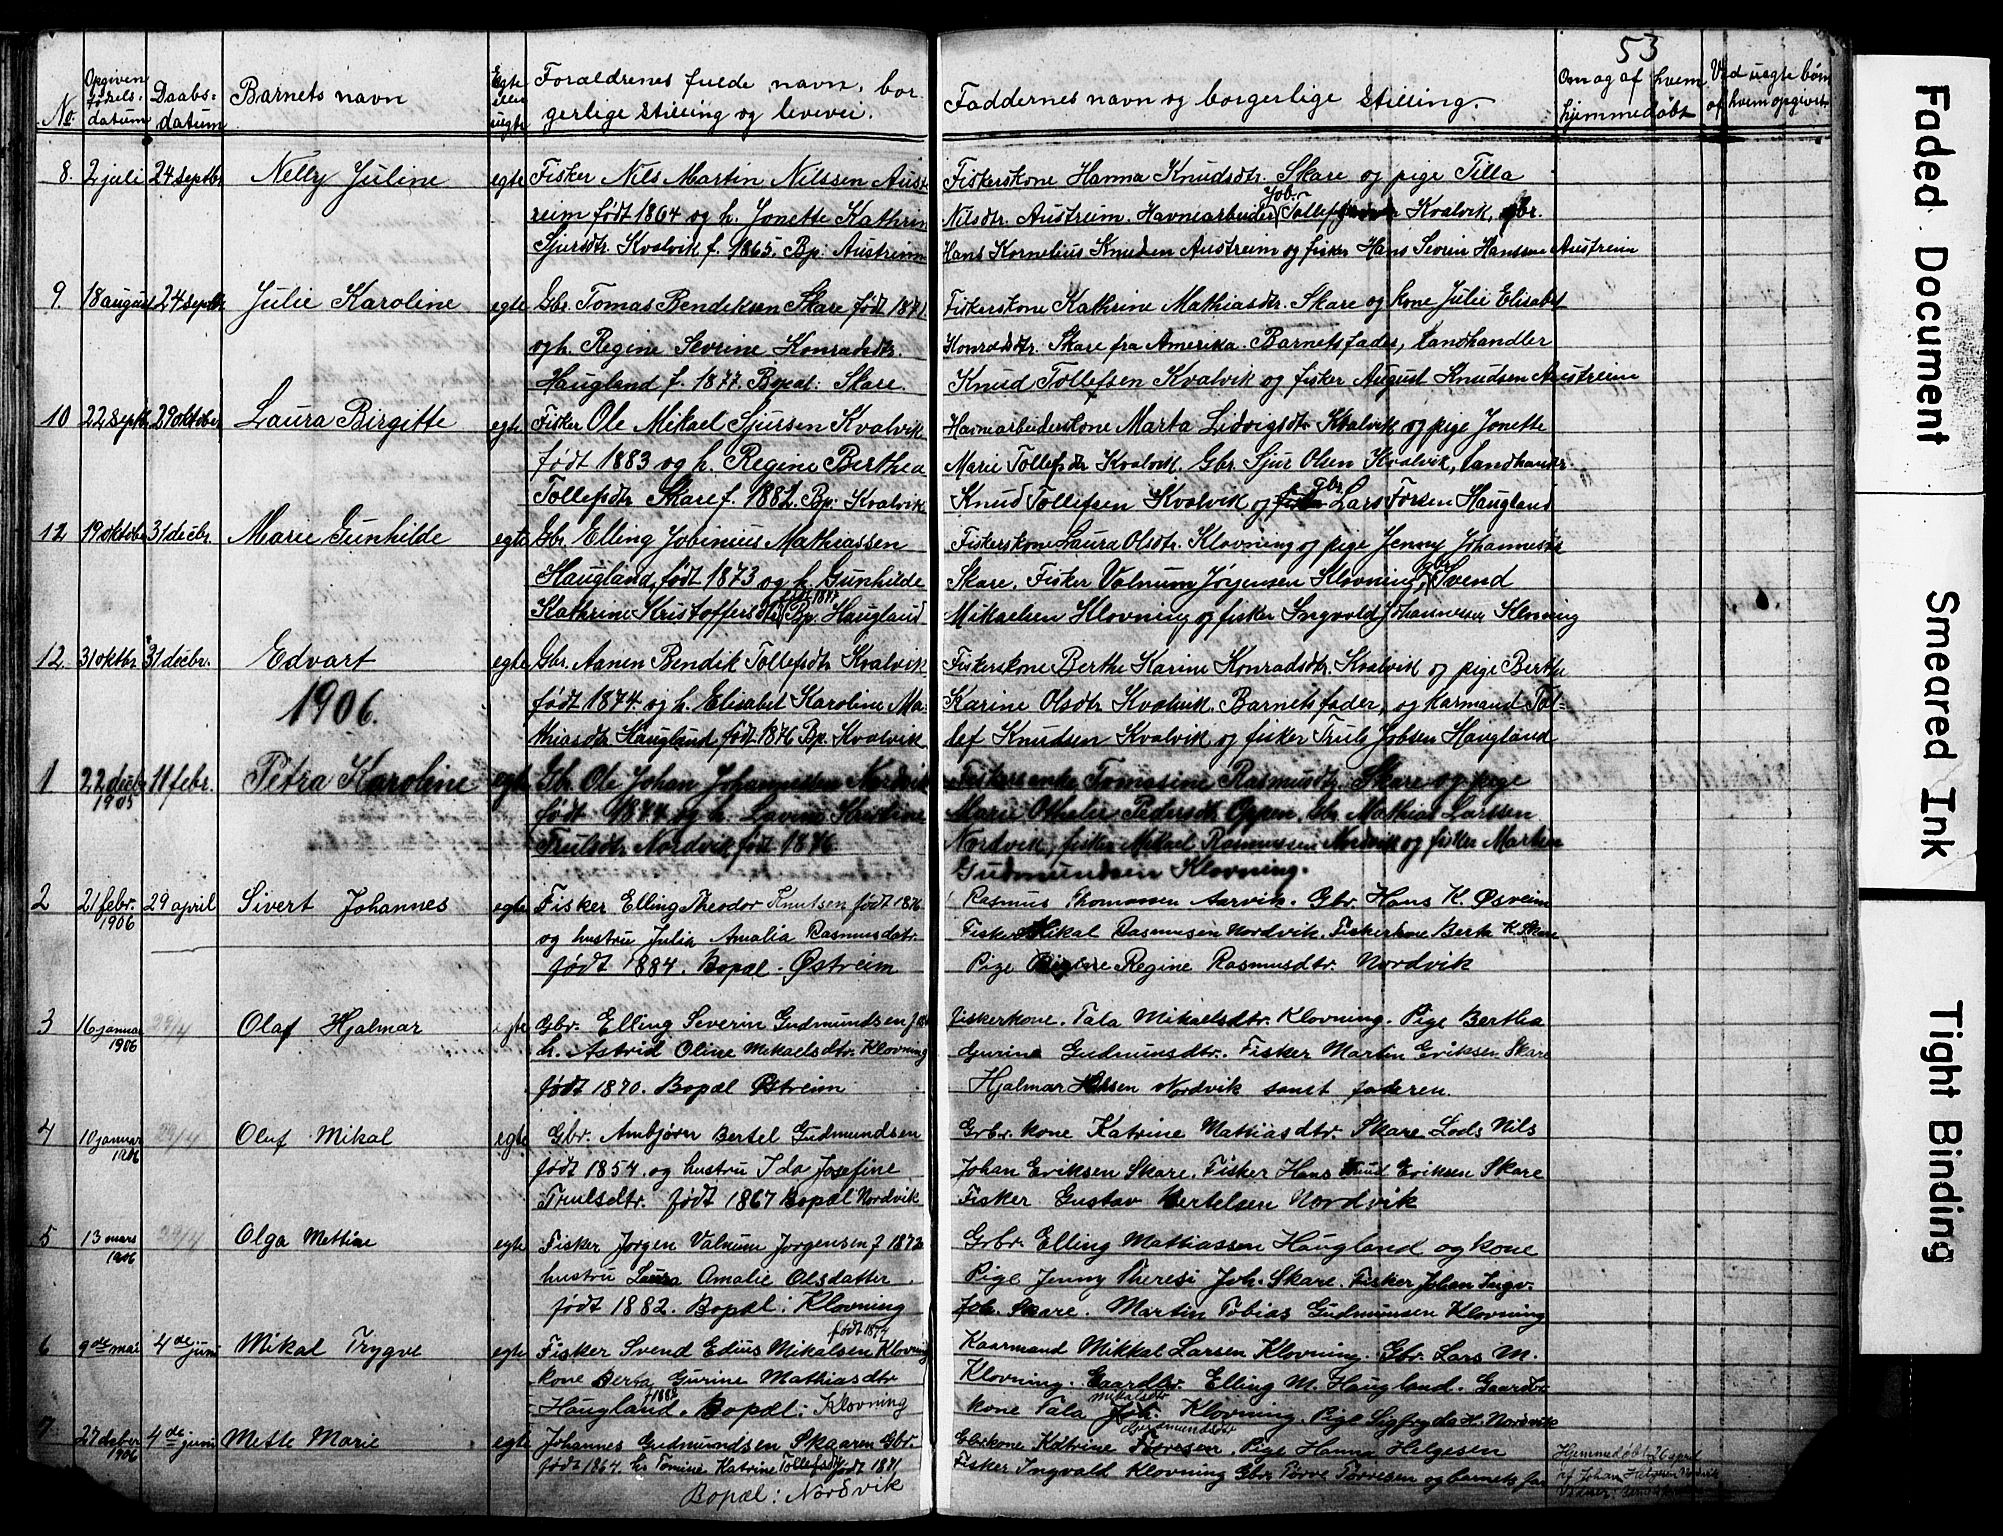 53
No. Opgiven fødelsdatum Daabsdatum Barnets navn Egte eller uegte Forældrenes fulde navn, bor-
gerlige stilling og levevei.
Faddernes navn og borgerlige stilling.
Om og af hvem hjemmedøbt
Ved uegte børn af hvem opgivet
8. 2 juli 24 septbr Nelly Juline egte Fisker Nils Martin Nilssen Aust-
reim født 1864 og h. Jonette Kathrin
Sjursdtr. Kvalvik f. 1865. Bp: Austreim
Fiskerskone Hanna Knudsdtr. Skare og pige Tilla
Nilsdtr. Austreim. Havnearbeider Job. Tollef Kvalvik, gbr.
Hans Kornelius Knudsen Austreim og fisker Hans Severin Hanssen Austreim
9. 18 august 24 septbr Julie Karoline egte Gbr. Tomas Bendiksen Skare født 1871
og h. Regine Sevrine Konradsdtr.
Haugland f. 1877. Bopæl: Skare.
Fiskerskone Kathrine Mathiasdtr. Skare og kone Julie Elisabet
Konradsdtr. Skare fra Amerika. Barnets fader, landhandler
Knud Tollefsen Kvalvik og fisker August Knudsen Austreim
10 22 septbr 29 oktober Laura Birgitte egte Fisker Ole Mikael Sjursen Kvalvik
født 1883 og h. Regine Berthea
Tollefsdtr Skare f. 1882. Bp: Kvalvik
Havnearbeiderskone Marta Lidvigsdtr Kvalvik og pige Jonette
Marie Tollefsdtr Kvalvik. Gbr. Sjur Olsen Kvalvik, landhandr.
Knud Tollefsen Kvalvik og fisker gbr Lars Torsen Haugland
12 19 oktober 31 decbr. Marie Gunhilde egte Gbr. Elling Jobinius Mathiassen
Haugland, født 1873 og h. Gunhilde
Kathrine Kristoffersdtr født 1877 Bp: Haugland
Fiskerskone Laura Olsdtr. Klovning og pige Jenny Johannesdtr
Skare. Fisker Valnum Jørgensen Klovning, Gbr Svend
Mikaelsen Klovning og fisker Ingvold Johannesen Klovning
12 31 oktbr. 31 decbr. Edvart egte Gbr. Aanen Bendik Tollefsdtr Kvalvik
født 1874 og h. Elisabet Karoline Ma-
thiasdtr Haugland født 1876 Bp. Kvalvik
Fiskerskone Berthe Karine Konradsdtr. Kvalvik og pige Berthe
Karine Olsdtr Kvalvik. Barnets fader, og kårmand Tol-
lef Knudsen Kvalvik og fisker Truls Jobsen Haugland
1906.
1 22 decbr 1905 11 febr. Petra Karoline egte Gbr. Ole Johan Johannessen Nordvik
født 1877 og h. Lavina Kristine
Trulsdtr Nordvik født 1876
Fiskersenke Tomasine Rasmusdtr. Skare og pige
Marie Othelie Pedersdtr Oppen. Gbr Mathias Larssen
Nordvik, fisker Mikael Rasmussen Nordvik og fisker Martin
Gudmundsen Klovning.
2 21 febr. 1906 29 april Sivert Johannes egte Fisker Elling Theodor Knutsen født 1876
og hustru Julia Amalia Rasmusdatr.
født 1884. Bopæl. Østreim
Rasmus Thomassen Aarvik. Gbr. Hans K. Øsreim
Fisker Mikal Rasmusen Nordvik. Fiskerkone Berta K. Skare
Pige Regine Rasmusdtr. Nordvik
3 16 januar 1906 29/4 Olaf Hjalmar egte Gbr. Elling Severin Gudmundsen
h. Astrid Oline Mikaelsdtr. Klovning
født 1870. Bopæl Østreim
Fiskerkone. Tala Mikaelsdtr. Klovning. Pige Bertha
Gurine Gudmunsdtr. Fisker Martin Eriksen Skare
Hjalmar Nordvik samt faderen.
4 10 januar 1906 29/4 Oluf Mikal egte Gbr. Ambjørn Bertel Gudmundsen
født 1854 og hustru Ida Josefine
Trulsdtr. født 1867 Bopæl Nordvik
Grbr. kone Katrine Mathiasdtr. Skare. Lods Nils
Johan Eriksen Skare. Fisker Hans Knud Eriksen Skare
Fisker Gustav Bertelsen Nordvik
5 13 mars 1906 29/4 Olga Mettine egte Fisker Jørgen Valnum Jørgensen f 1873
hustru Laura Amalie Olsdatter
født 1882. Bopæl: Klovning
Grbr. Elling Mattiassen Haugland og kone
Pige Jenny Theresi Joh. Skare. Fisker Johan Ingv.
Joh. Skare. Martin Tobias Gudmunsen Klovning
6 9de mai 4de juni Mikal Trygve egte Fisker Svend Edius Mikalsen Klovning født 1877
kone Berta Gurine Mathiasdtr
Haugland 1882. Bopæl: Klovning
Kaarmand Mikkel Larsen Klovning. Gbr. Lars M.
Klovning. Gaardbr. Elling M. Haugland. Gaardbr
kone Tala Mikalsdtr Klovning. Pige Sigfryda H. Nordvik
7 27 decber 1906 4de juni Mette Marie egte Johannes Gudmundsen Skaaren Gbr.
født 1864. hs Tomine Katrine Tollefsdtr født 1871
Bopæl: Nordvik
Gbrkone Katrine Gudmundsdtr. Pige Hanna Helgesen
Fisker Ingvald Klovning Gbr. Torve Torvesen og barnets far
Hjemmedøbt 26 april
af Johan Helgesen Nordvik
Faded Document
Smeared Ink
Tight Binding